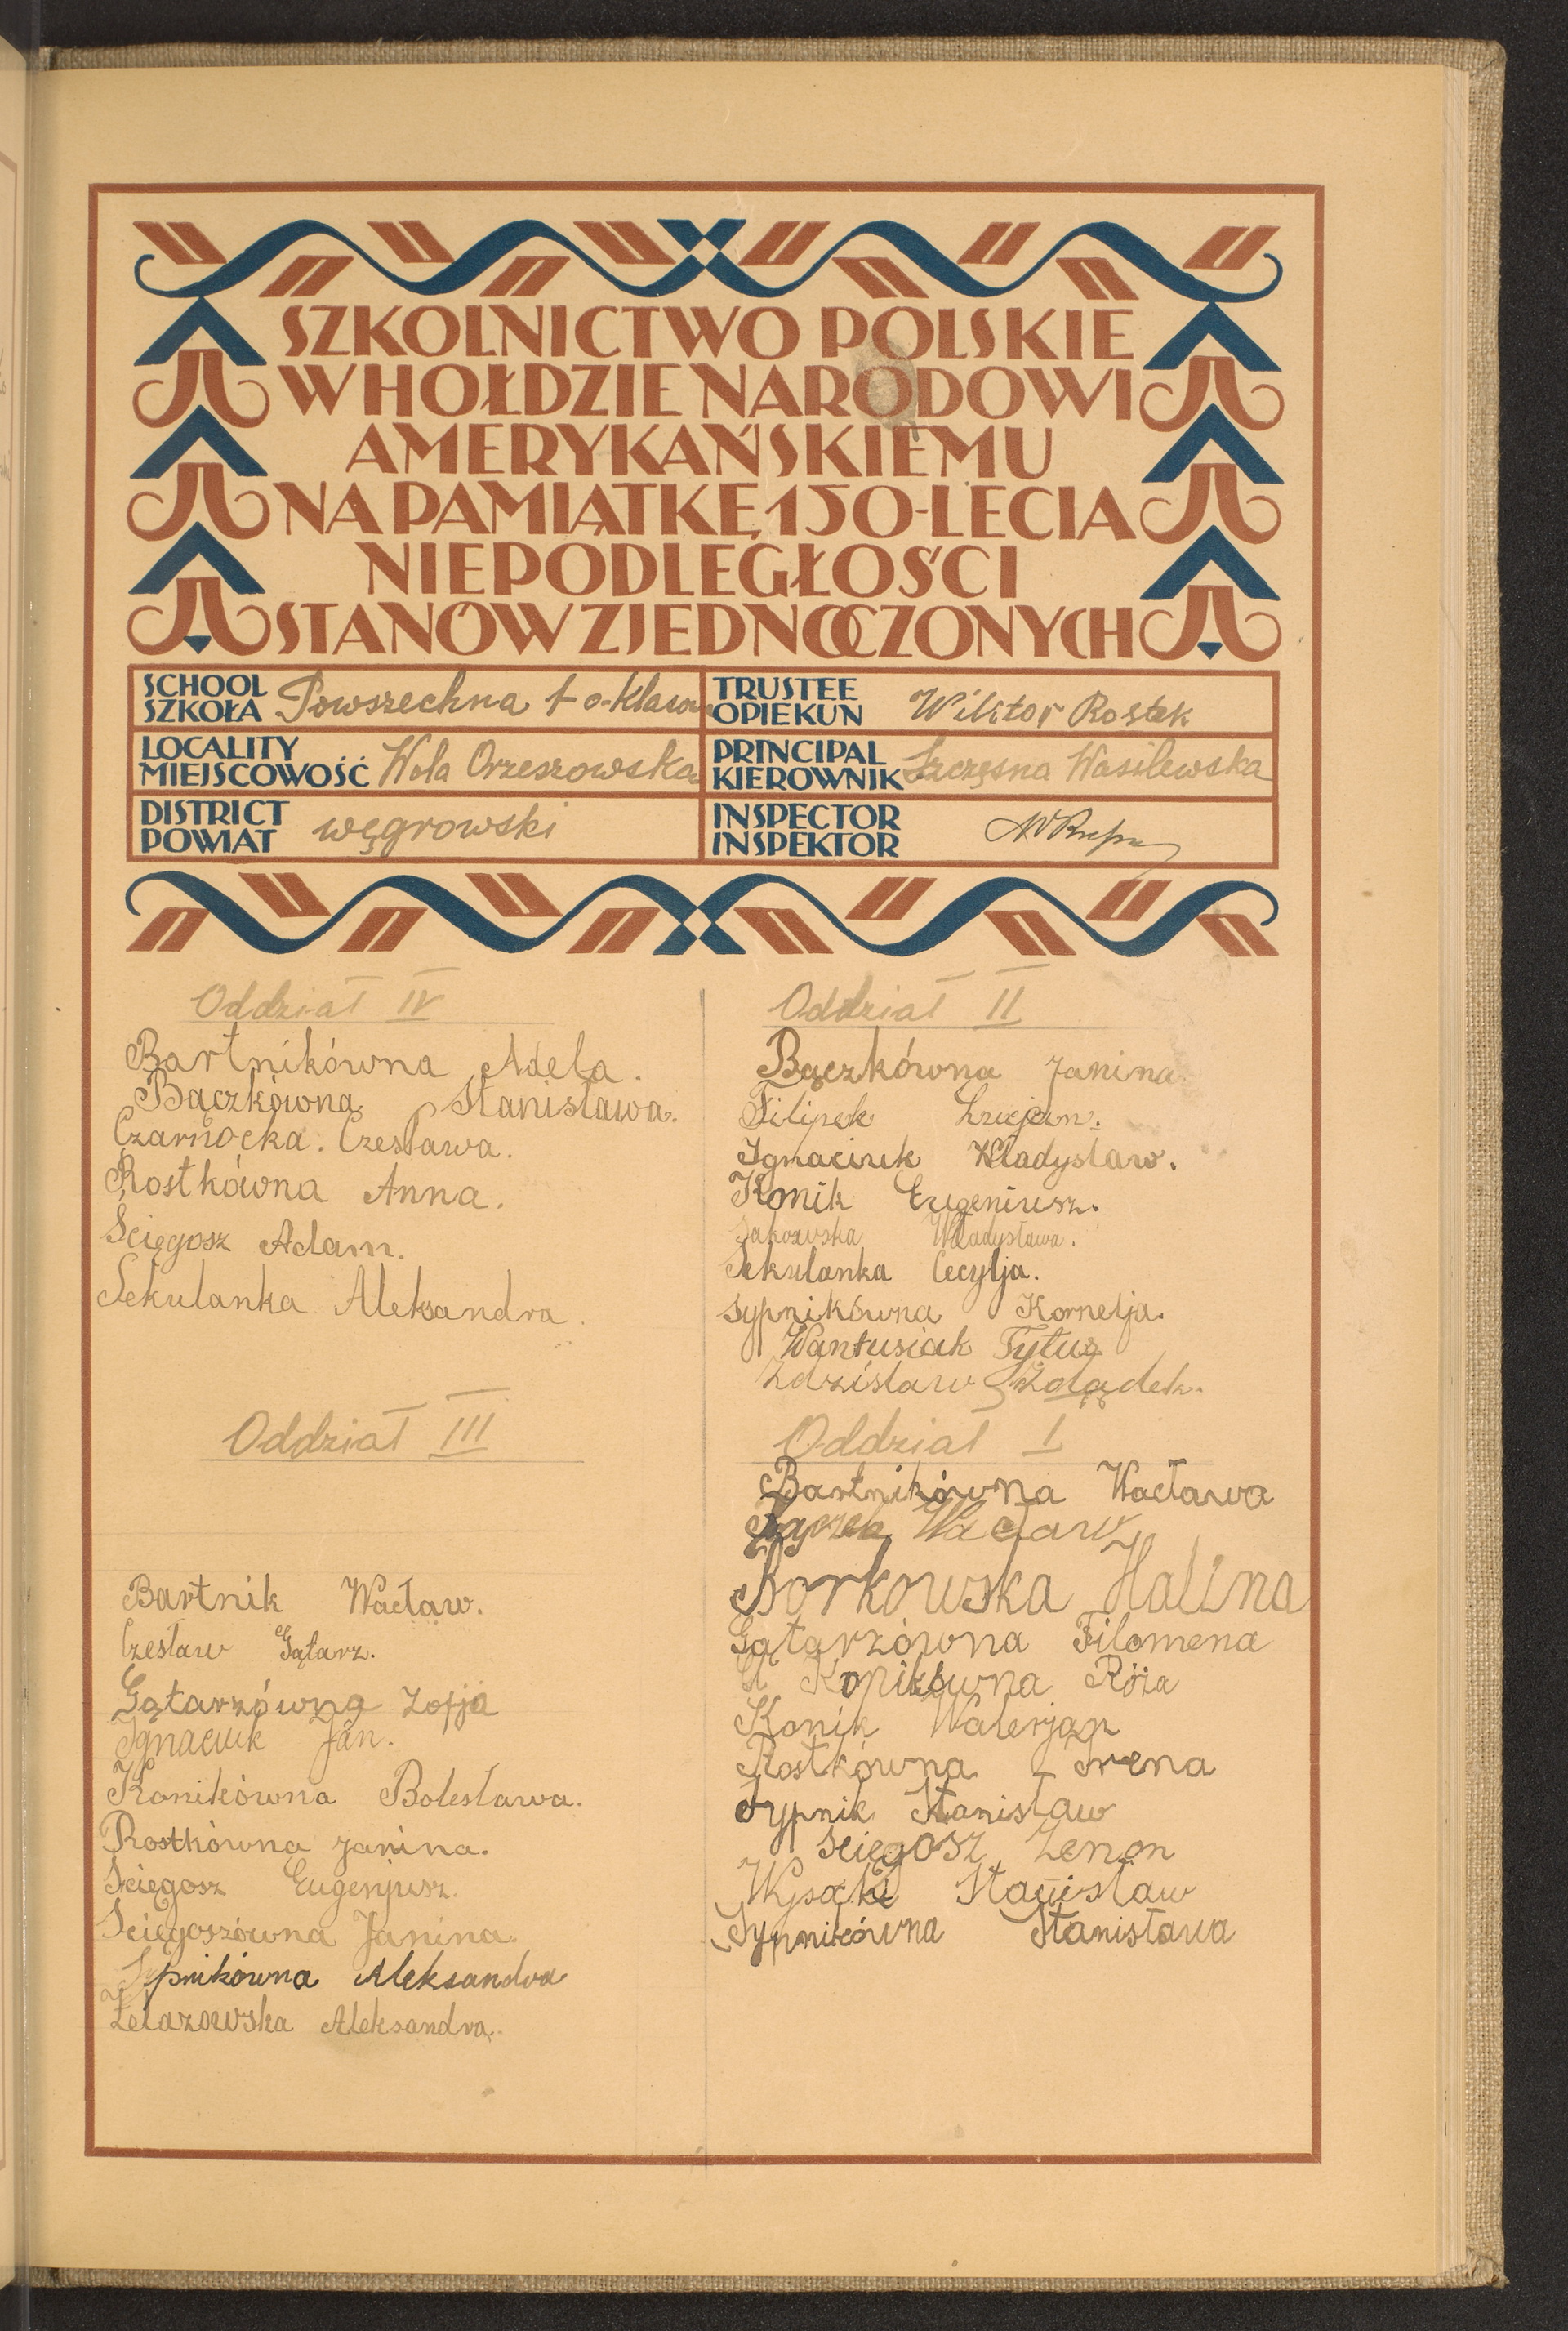 SZKOLNICTWO POLSKIE
W HOŁDZIE NARODOWI
AMERYKAŃSKIEMU
NA PAMIĄTKĘ 150-LECIA
NIEPODLEGŁOŚCI
STANÓW ZJEDNOCZONYCH
SCHOOL
SZKOŁA Powszechna 1-o-klasow
LOCALITY
MIEJSCOWOŚĆ Wola Orzeszowska
DISTRICT
POWIAT węgrowski
TRUSTEE
OPIEKUN Wiktor Rostek
PRINCIPAL
KIEROWNIK Szczęsna Wasilewska
INSPECTOR
INSPEKTOR
Oddział IV
Bartnikówna Adela.
Bączkówna Stanisława.
Czarnocka. Czesława.
Rostkówna Anna.
Ścięgosz Adam.
Sekulanka Aleksandra.
Oddział III
Bartnik Wacław.
Czesław Gątarz.
Gątarzówna Zofja
Ignaciuk Jan.
Konikówna Bolesława.
Rostkówna Janina.
Ściegosz Eugenjusz.
Ściegoszówna Janina
Sypnikówna Aleksandra
Żelazowska Aleksandra.
Oddział II
Bączkówna Janina.
Filipek Lucjan.
Ignaciuk Władysław.
Konik Eugeniusz.
Władysława.
Sekulanka Cecylja.
Sypnikówna Kornelja.
Wantusiak Tytus
Zdzisław Żołądek.
Oddział I
Bartnikówna Wacława
Wacław
Borkowska Halina
Gątarzówna Filomena
Konikówna Róża
Konik Walerjan
Rostkówna - Irena
Sypnik Stanisław
Sciegosz Zenon
Wysocki Stanisław
Sypnikówna Stanisława